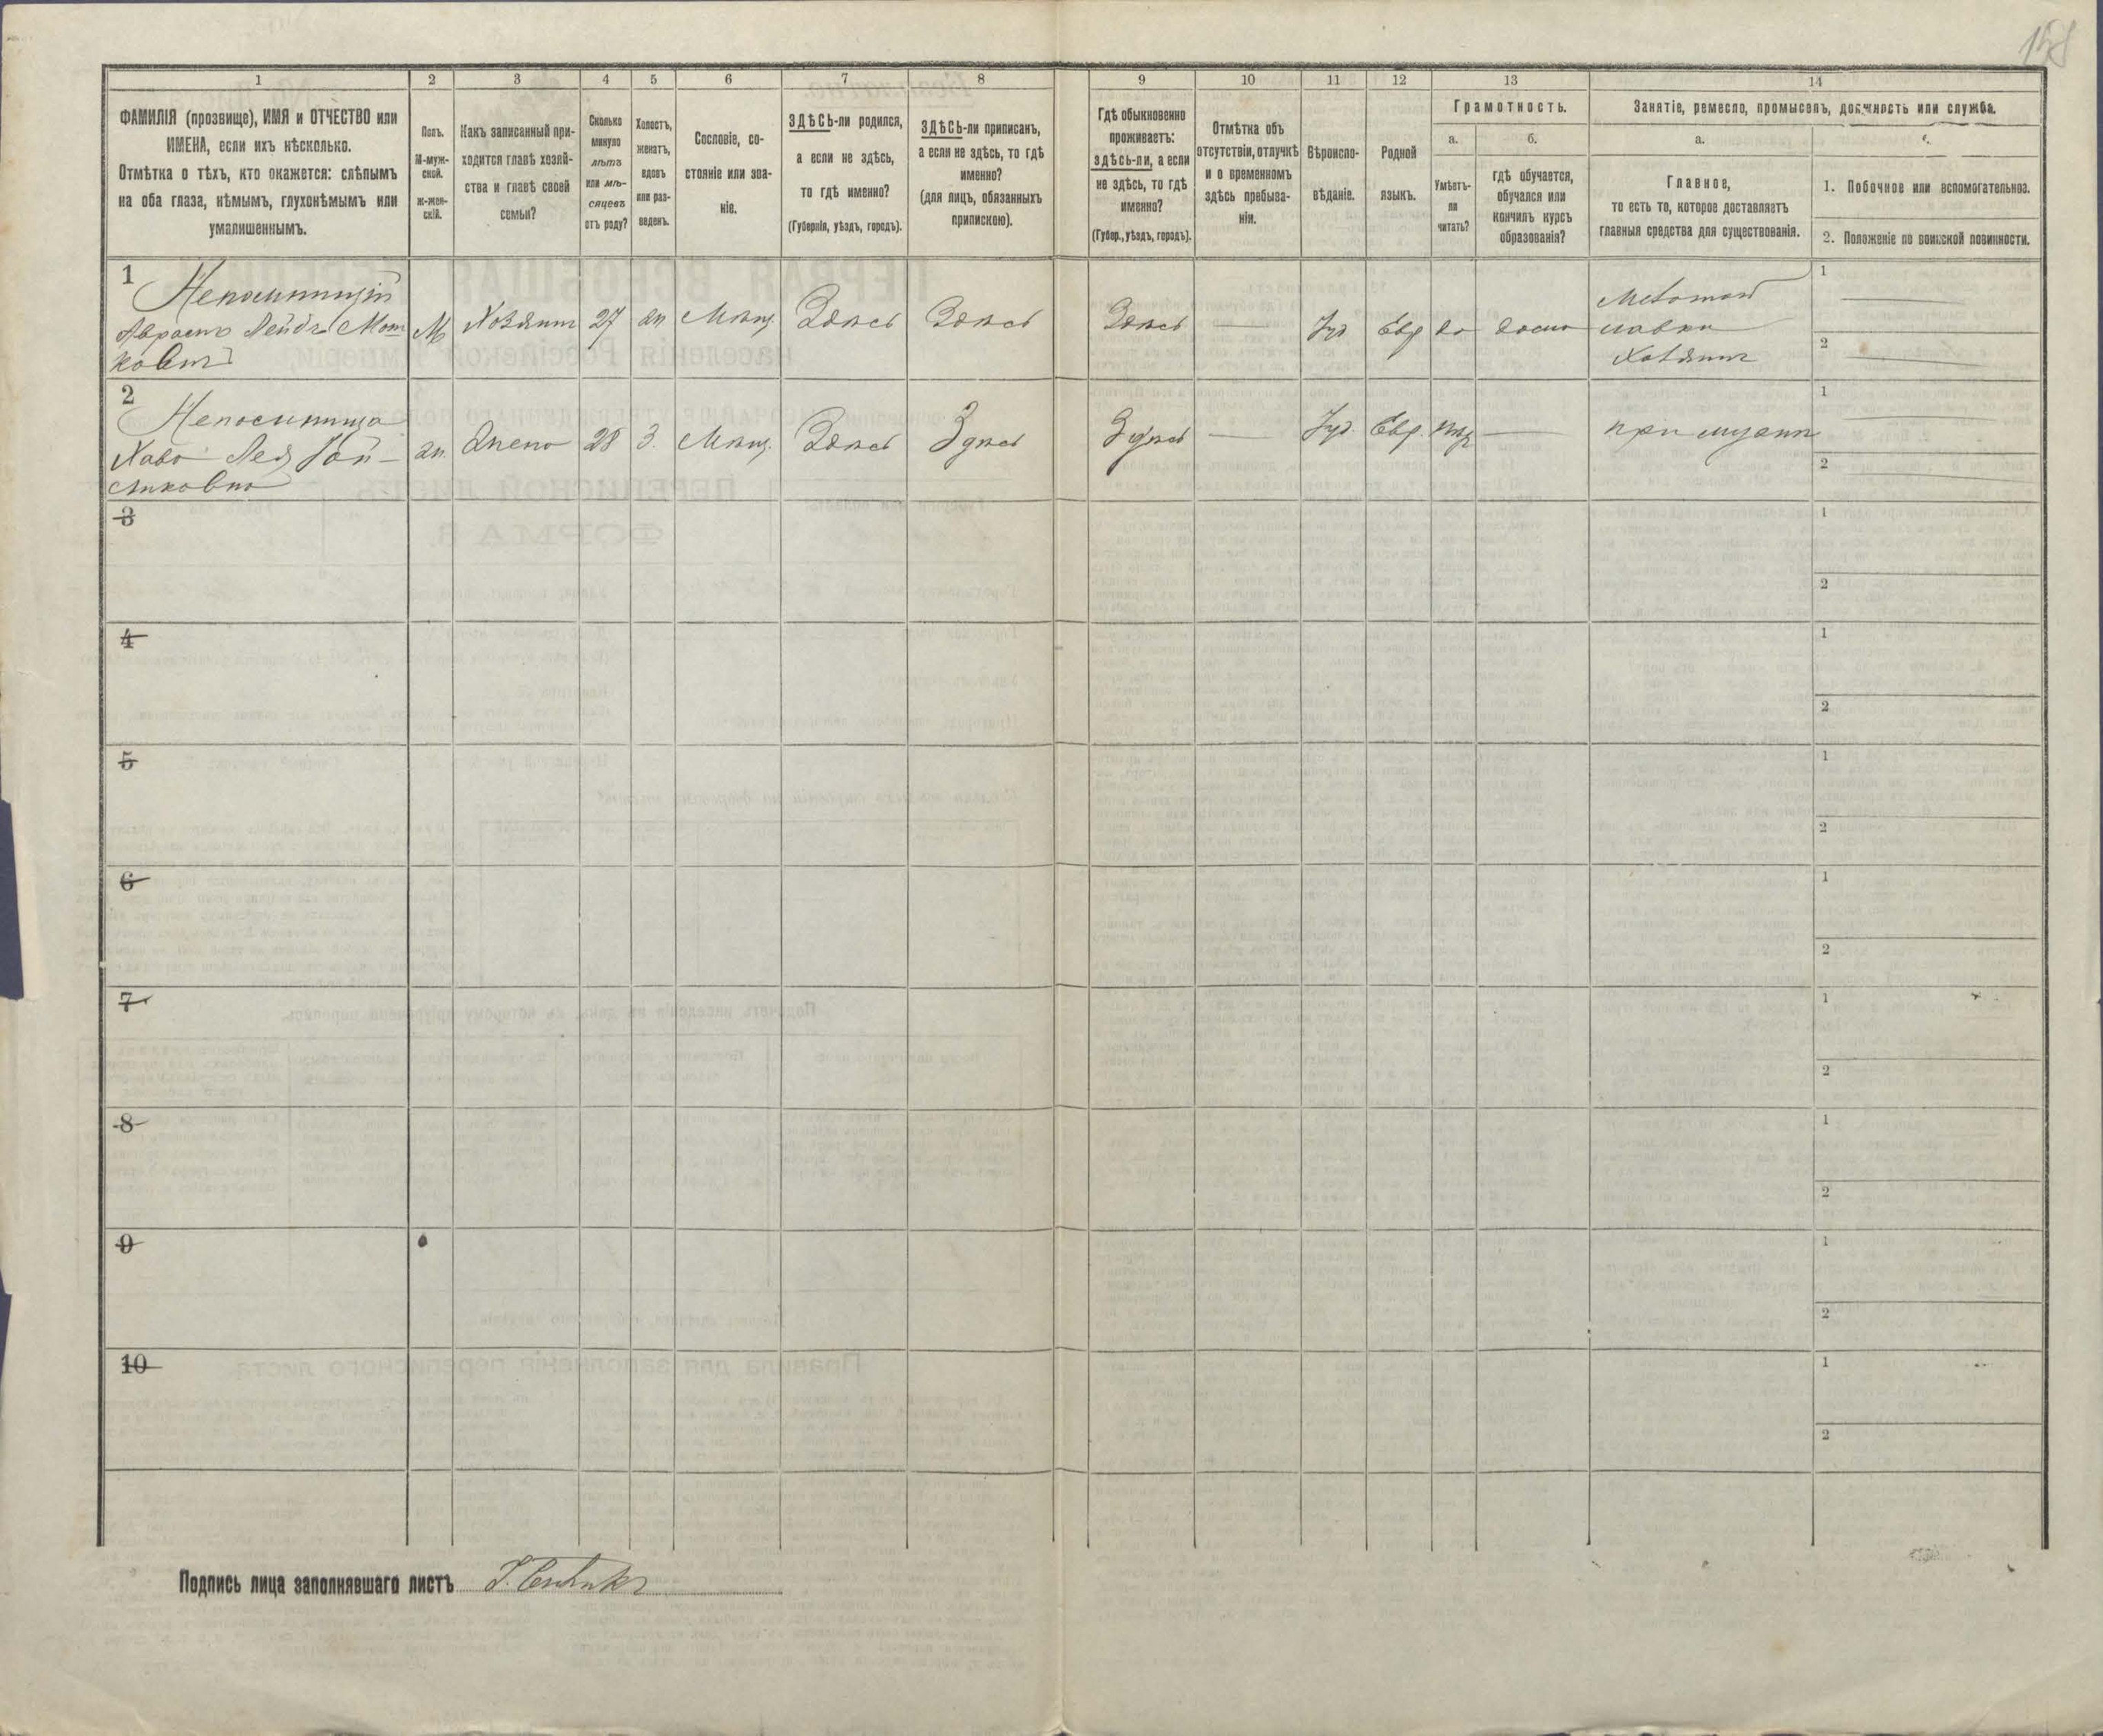 158
1
2
3
4
5
6
7
8
9
10
11
12
13
14
ФАМИЛІЯ (прозвище), ИМЯ и ОТЧЕСТВО или
ИМЕНА, если ихъ нѣсколько.
Отмѣтка о тѣхъ, кто окажется: слѣпымъ
на оба глаза, нѣмымъ, глухонѣмымъ или
умалишеннымъ.
Полъ.
М-муж-
ской.
ж-жен-
скій.
Какъ записанный при-
ходится главѣ хозяй-
ства и главѣ своей
семьи?
Сколько
минуло
лѣтъ
или мѣ-
сяцевъ
отъ роду?
Холостъ,
женатъ,
вдовъ
или раз-
веденъ.
Сословіе, со-
стояніе или зва-
ніе.
ЗДѢСЬ-ли родился,
а если не здѣсь,
то гдѣ именно?
(Губернія, уѣздъ, городъ).
ЗДѢСЬ-ли приписанъ,
а если не здѣсь, то гдѣ
именно?
(для лицъ, обязанныхъ
припискою).
Гдѣ обыкновенно
проживаетъ:
здѣсь-ли, а если
не здѣсь, то гдѣ
именно?
(Губер., уѣздъ, городъ).
Отмѣтка объ
отсутствіи, отлучкѣ
и о временномъ
здѣсь пребыва-
ніи.
Вѣроиспо-
вѣданіе.
Родной
языкъ.
Грамотность.
а.
Умѣетъ-
ли
читать?
б.
гдѣ обучается,
обучался или
кончилъ курсъ
образованія?
Занятіе, ремесло, промыселъ, должность или служба.
а.
Главное,
то есть то, которое доставляетъ
главныя средства для существованія.
1. Побочное или вспомогательное.
2. Положеніе по воинской повинности.
1
Авраамъ Лейбъ
М
Хозяинъ
27
жн
Мѣщ.
Здѣсь
Здѣсь
Здѣсь
—
Іуд
Евр
да
дома
лавки
Хозяинъ
1
2
2
Хава Лея
жн.
Жена
28
З.
Мѣщ.
Здѣсь
Здѣсь
Здѣсь
—
Іуд.
Евр.
—
при мужѣ
1
2
3
1
2
4
1
2
5
1
2
6
1
2
7
1
2
8
1
2
9
1
2
10
1
2
Подпись лица заполнявшаго листъ